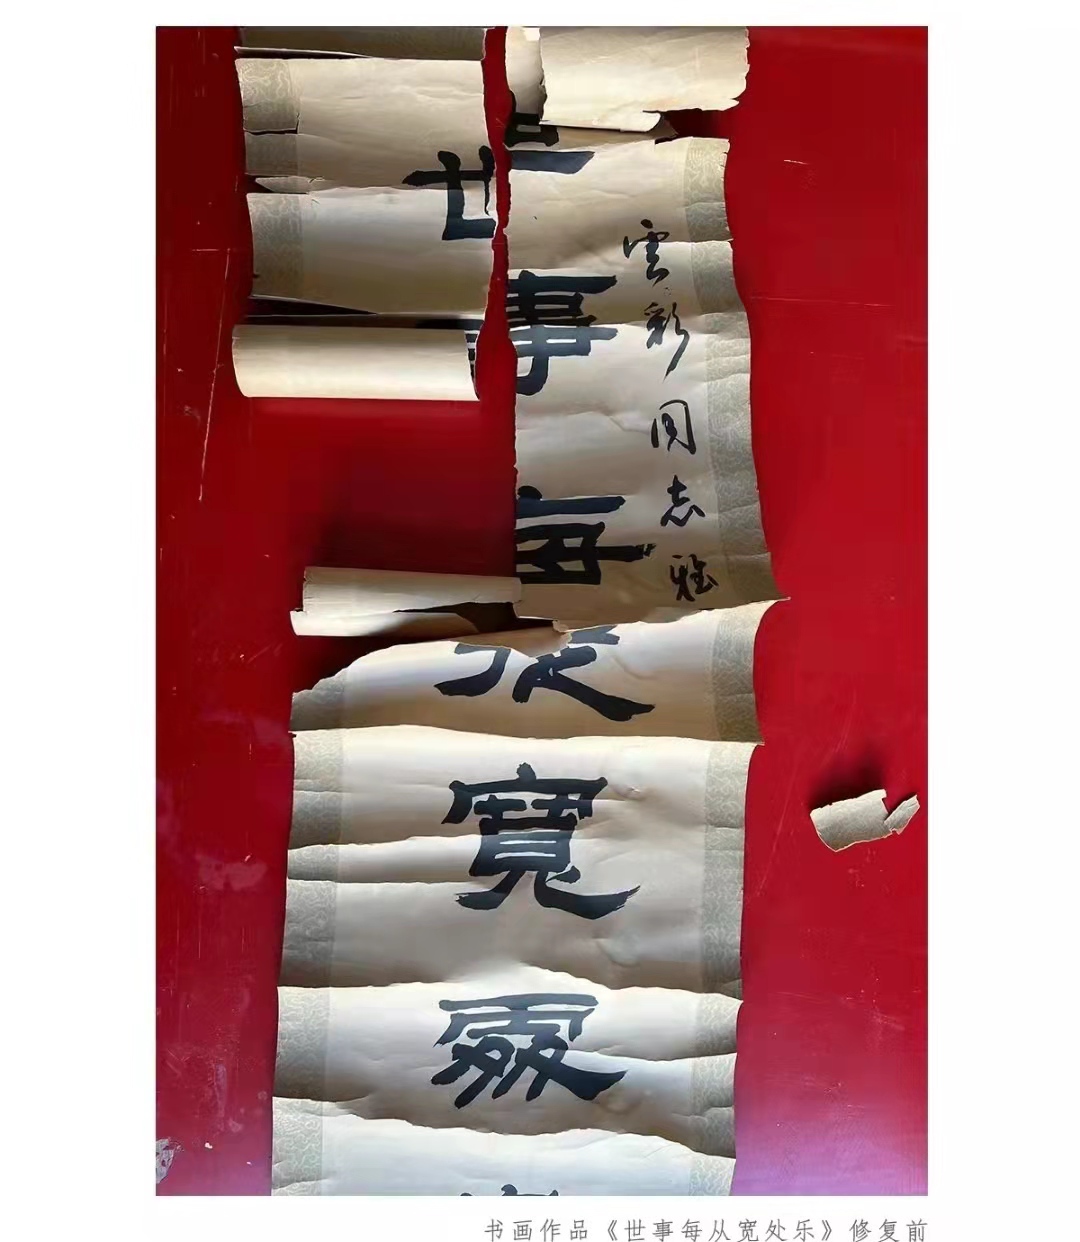 雲彩同志雅
世事每從寬處
书画作品《世事每从宽处乐》修复前